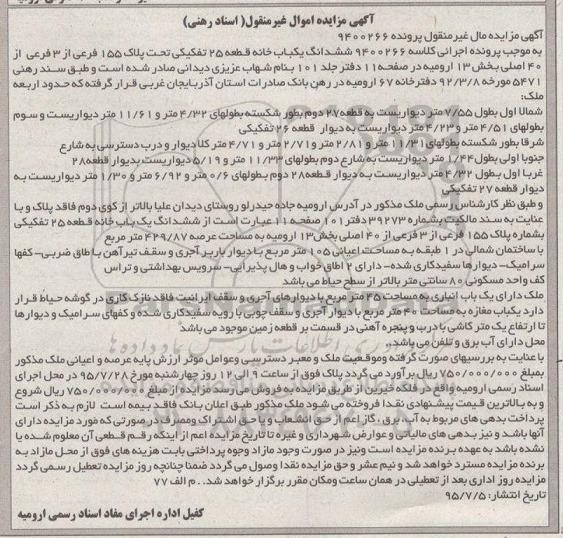 آگهی مزایده اموال غیر منقول( اسناد رهنی)
آگهی مزایده مال غیر منقول پرونده ۹۴۰۰۲۶۶
به موجب پرونده اجرائی کلاسه ۹۴۰۰۲۶۶ ششدانگ یکباب خانه قطعه ۲۵ تفکیکی تحت پلاک ۱۵۵ فرعی از ۳ فرعی از
۴۰ اصلی بخش ۱۳ ارومیه در صفحه ۱۱ دفتر جلد ۱۰۱ بنام شهاب عزیزی دیدانی صادر شده است و طبق سند رهنی
۵۴۷۱ مورخه ۹۲/۳/۸ دفترخانه ۶۷ ارومیه در رهن بانک صادرات استان آذربایجان غربی قرار گرفته که حدود اربعه
ملک:
شمالا اول بطول ۷/۵۵ متر دیواریست به قطعه ۲۷ دوم بطور شکسته بطولهای ۴/۳۲ متر و ۱۱/۶۱ متر دیواریست و سوم
بطولهای ۴/۵۱ متر و ۴/۲۳ متر دیواریست به دیوار قطعه ۲۶ تفکیکی
شرقا بطور شکسته بطولهای ۱۱/۳۱ متر و ۲/۸۱ متر و ۲/۷۱ متر و ۴/۷۱ متر کلا دیوار و درب دسترسی به شارع
جنوبا اولی بطول ۱/۴۴ متر دیواریست به شارع دوم بطولهای ۱۱/۳۳ متر و ۵/۱۹ متر دیواریست بدیوار قطعه ۲۸
غربا اول بطول ۴/۳۲ متر دیواریست به دیوار قطعه ۲۸ دوم بطولهای ۰/۶ متر و ۶/۹۲ متر و ۱/۳۰ متر دیواریست به
دیوار قطعه ۲۷ تفکیکی
و طبق نظر کارشناس رسمی ملک مذکور در آدرس ارومیه جاده حیدرلو روستای دیدان علیا بالاتر از کوی دوم فاقد پلاک و با
عنایت به سند مالکیت بشماره ۳۹۲۷۳ دفتر ۱۰۱ صفحه ۱۱ عبارت است از ششدانگ یک باب خانه قطعه ۲۵ تفکیکی
بشماره پلاک ۱۵۵ فرعی از ۳ فرعی از ۴۰ اصلی بخش ۱۳ ارومیه به مساحت عرصه ۴۲۹/۸۷ متر مربع
با ساختمان شمالی در ۱ طبقه به مساحت اعیانی ۱۰۵ متر مربع با دیوار باربر آجری و سقف تیرآهن با طاق ضربی- کفها
سرامیک- دیوارها سفیدکاری شده- دارای ۲ اطاق خواب و هال پذیرایی- سرویس بهداشتی و تراس
کف واحد مسکونی ۸۰ سانتی متر بالاتر از سطح حیاط می باشد
ملک دارای یک باب انباری به مساحت ۲۵ متر مربع با دیوارهای آجری و سقف ایرانیت فاقد نازک کاری در گوشه حیاط قرار
دارد یکباب مغازه به مساحت ۴۰ متر مربع با دیوار آجری و سقف چوبی با رویه سفیدکاری شده و کفهای سرامیک و دیوارها
تا ارتفاع یک متر کاشی با درب و پنجره آهنی در قسمت بر قطعه زمین موجود می باشد
محل دارای آب برق و تلفن می باشد.
با عنایت به بررسیهای صورت گرفته و موقعیت ملک و معبر دسترسی و عوامل موثر ارزش پایه عرصه و اعیانی ملک مذکور
بمبلغ ۷۵۰/۰۰۰/۰۰۰ ریال برآورد می گردد پلاک فوق از ساعت ۹ الی ۱۲ روز چهارشنبه مورخ ۹۵/۷/۲۸ در محل اجرای
اسناد رسمی ارومیه واقع در فلکه خیبرین از طریق مزایده به فروش می رسد مزایده از مبلغ ۷۵۰/۰۰۰/۰۰۰ ریال شروع
و به بالاترین قیمت پیشنهادی نقدا فروخته می شود ملک مذکور طبق اعلان بانک فاقد بیمه است لازم به ذکر است
پرداخت بدهی های مربوط به آب، برق، گاز اعم از حق انشعاب و یا حق اشتراک و مصرف در صورتی که مورد مزایده دارای
آنها باشد و نیز بدهی های مالیاتی و عوارض شهرداری و غیره تا تاریخ مزایده اعم از اینکه رقم قطعی آن معلوم شده یا
نشده باشد به عهده برنده مزایده است و نیز در صورت وجود مازاد وجوه پرداختی بابت هزینه های فوق از محل مازاد به
برنده مزایده مسترد خواهد شد و نیم عشر و حق مزایده نقدا وصول می گردد ضمنا چنانچه روز مزایده تعطیل رسمی گردد
مزایده روز اداری بعد از تعطیلی در همان ساعت و مکان مقرر برگزار خواهد شد. . م الف ۷۷
تاریخ انتشار: ۹۵/۷/۵
کفیل اداره اجرای مفاد اسناد رسمی ارومیه